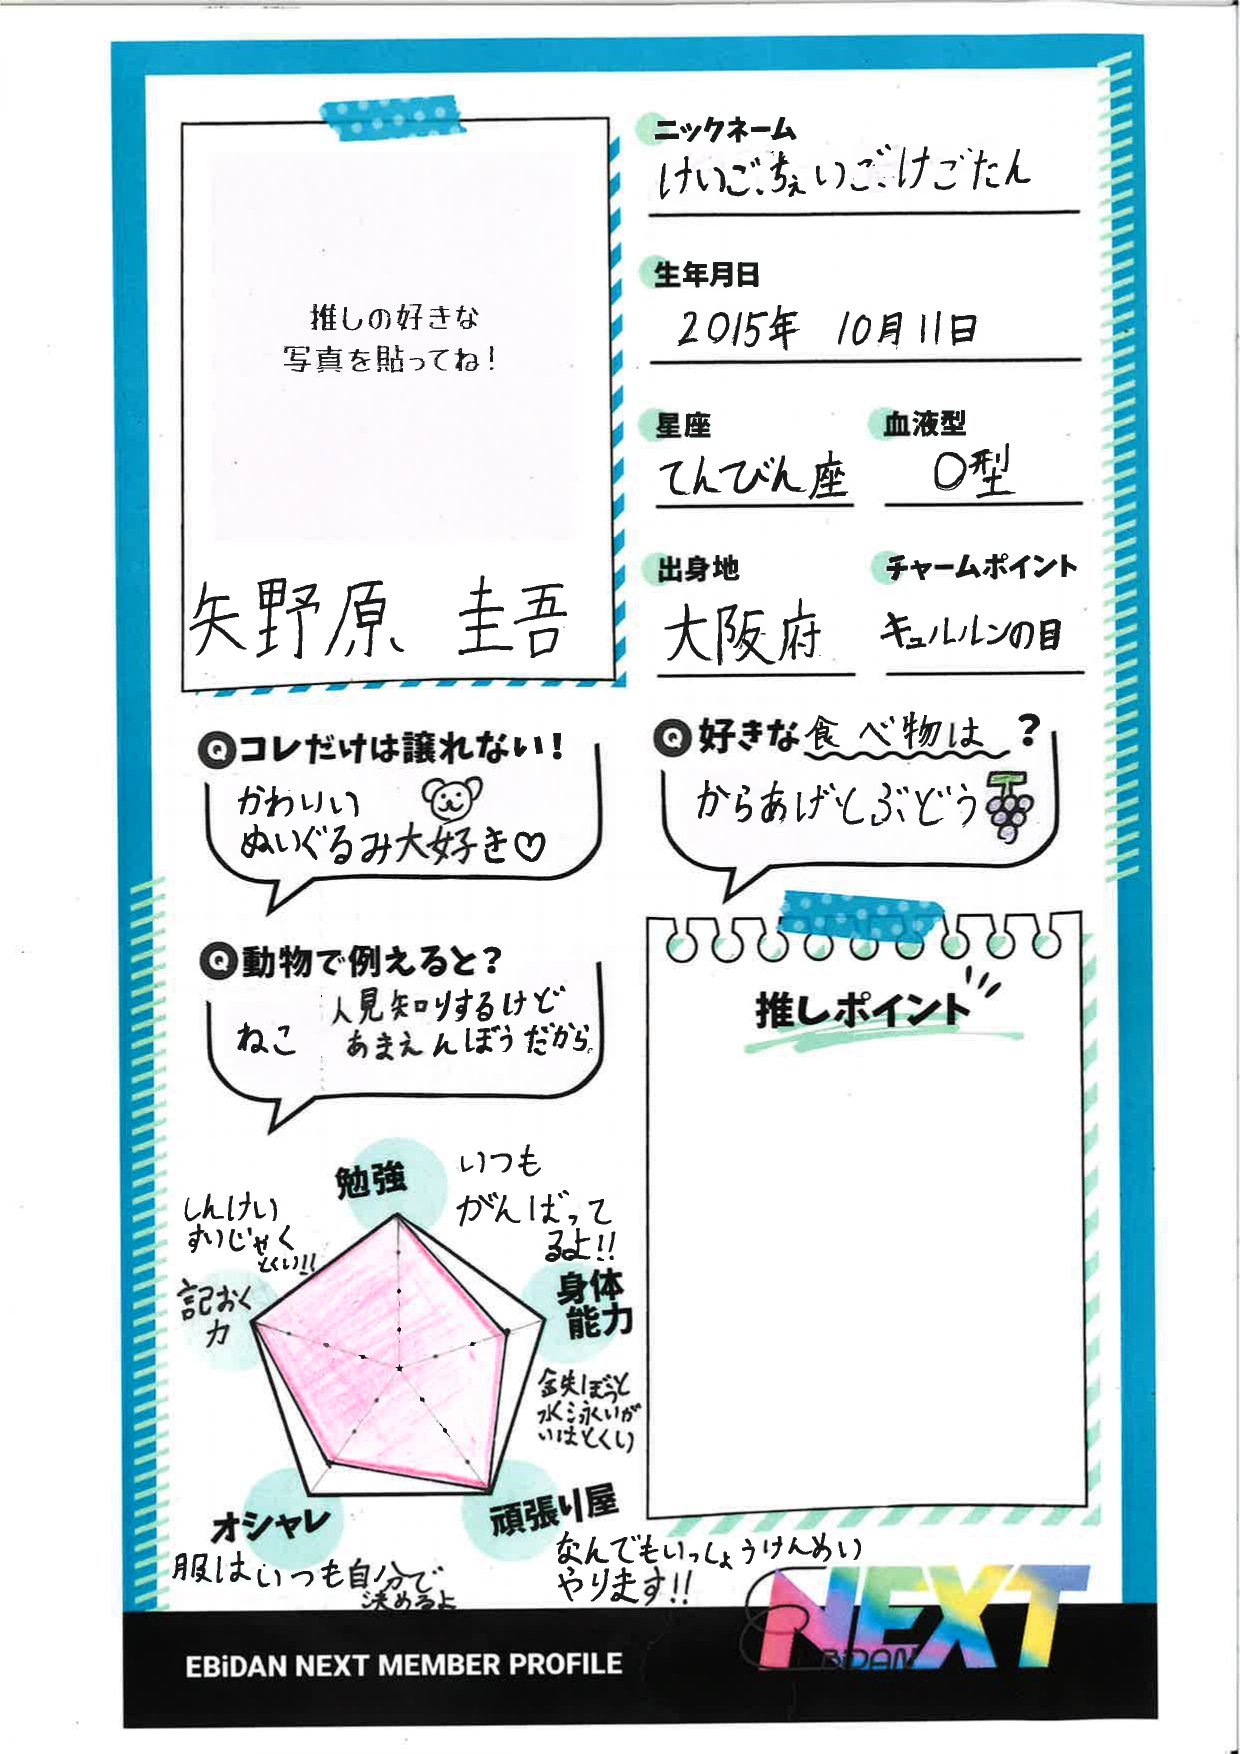 推しの好きな
写真を貼ってね!
矢野原 圭吾
ニックネーム
けいご、ちぇいご、けごたん
生年月日
2015年 10月11日
星座
てんびん座
血液型
O型
出身地
大阪府
チャームポイント
キュルルンの目
Qコレだけは譲れない!
かわいい
ぬいぐるみ大好き♡
Q好きな食べ物は?
からあげとぶどう
Q動物で例えると?
ねこ
人見知りするけど
あまえんぼうだから。
推しポイント
勉強
いつも
がんばって
るよ!!
身体
能力
鉄ぼうと
水泳いが
いはとくい
頑張り屋
なんでもいっしょうけんめい
やります!!
オシャレ
服はいつも自分で
決めるよ
記おく
力
しんけい
すいじゃく
とくい!!
EBiDAN NEXT MEMBER PROFILE
NEXT
EBiDAN